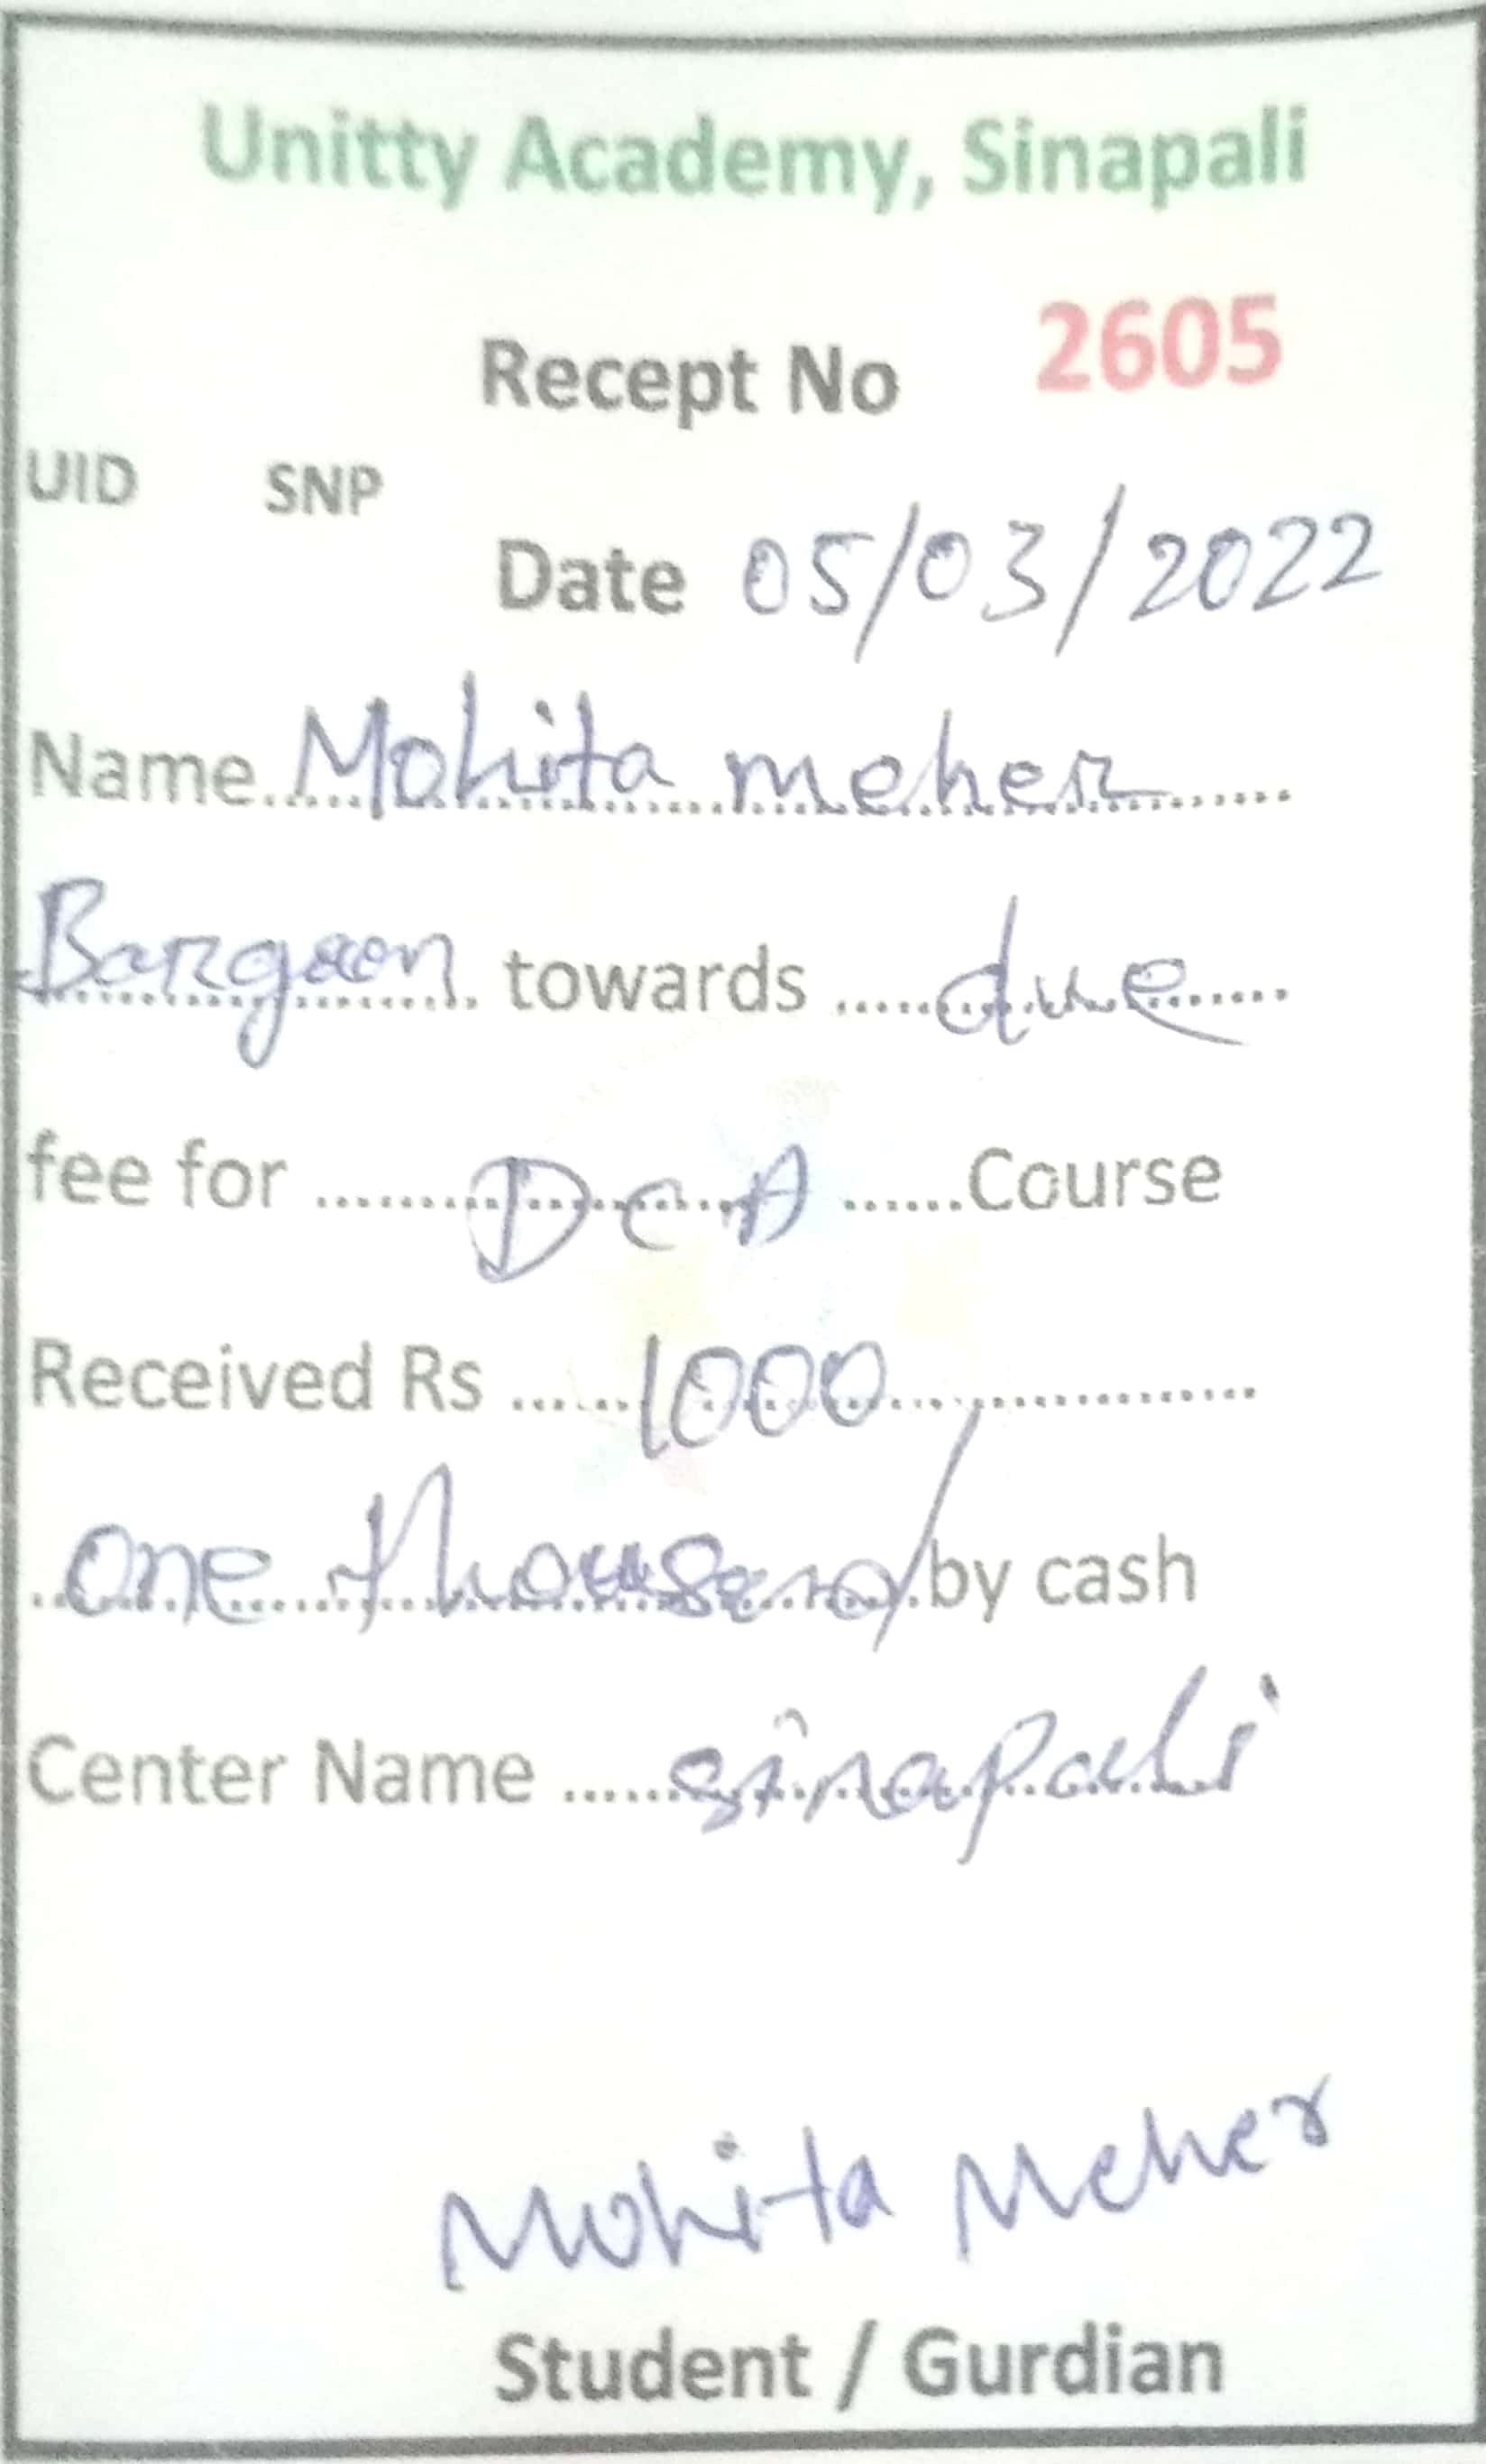 Unitty Academy, Sinapali
Recept No 2605
UID SNP
Date 05/03/2022
Name Mohita meher
Bargaon towards due
fee for DCA Course
Received Rs 1000
One thousand by cash
Center Name sinapali
Mohita Meher
Student / Gurdian